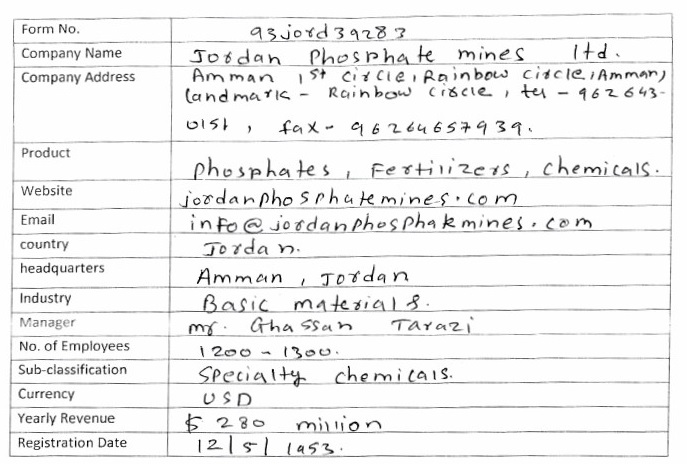 Form No. 93jord39283
Company Name Jordan Phosphate mines ltd.
Company Address Amman 1st circle, Rainbow circle, Amman,
landmark - Rainbow circle, tel - 962643-
0151, fax - 96264657939.
Product Phosphates, Fertilizers, Chemicals.
Website jordanphosphatemines.com
Email info@jordanphosphatemines.com
country Jordan.
headquarters Amman, Jordan
Industry Basic materials.
Manager mr. Ghassan Tarazi
No. of Employees 1200 - 1300.
Sub-classification Specialty chemicals.
Currency USD
Yearly Revenue $ 280 million
Registration Date 12/5/1953.